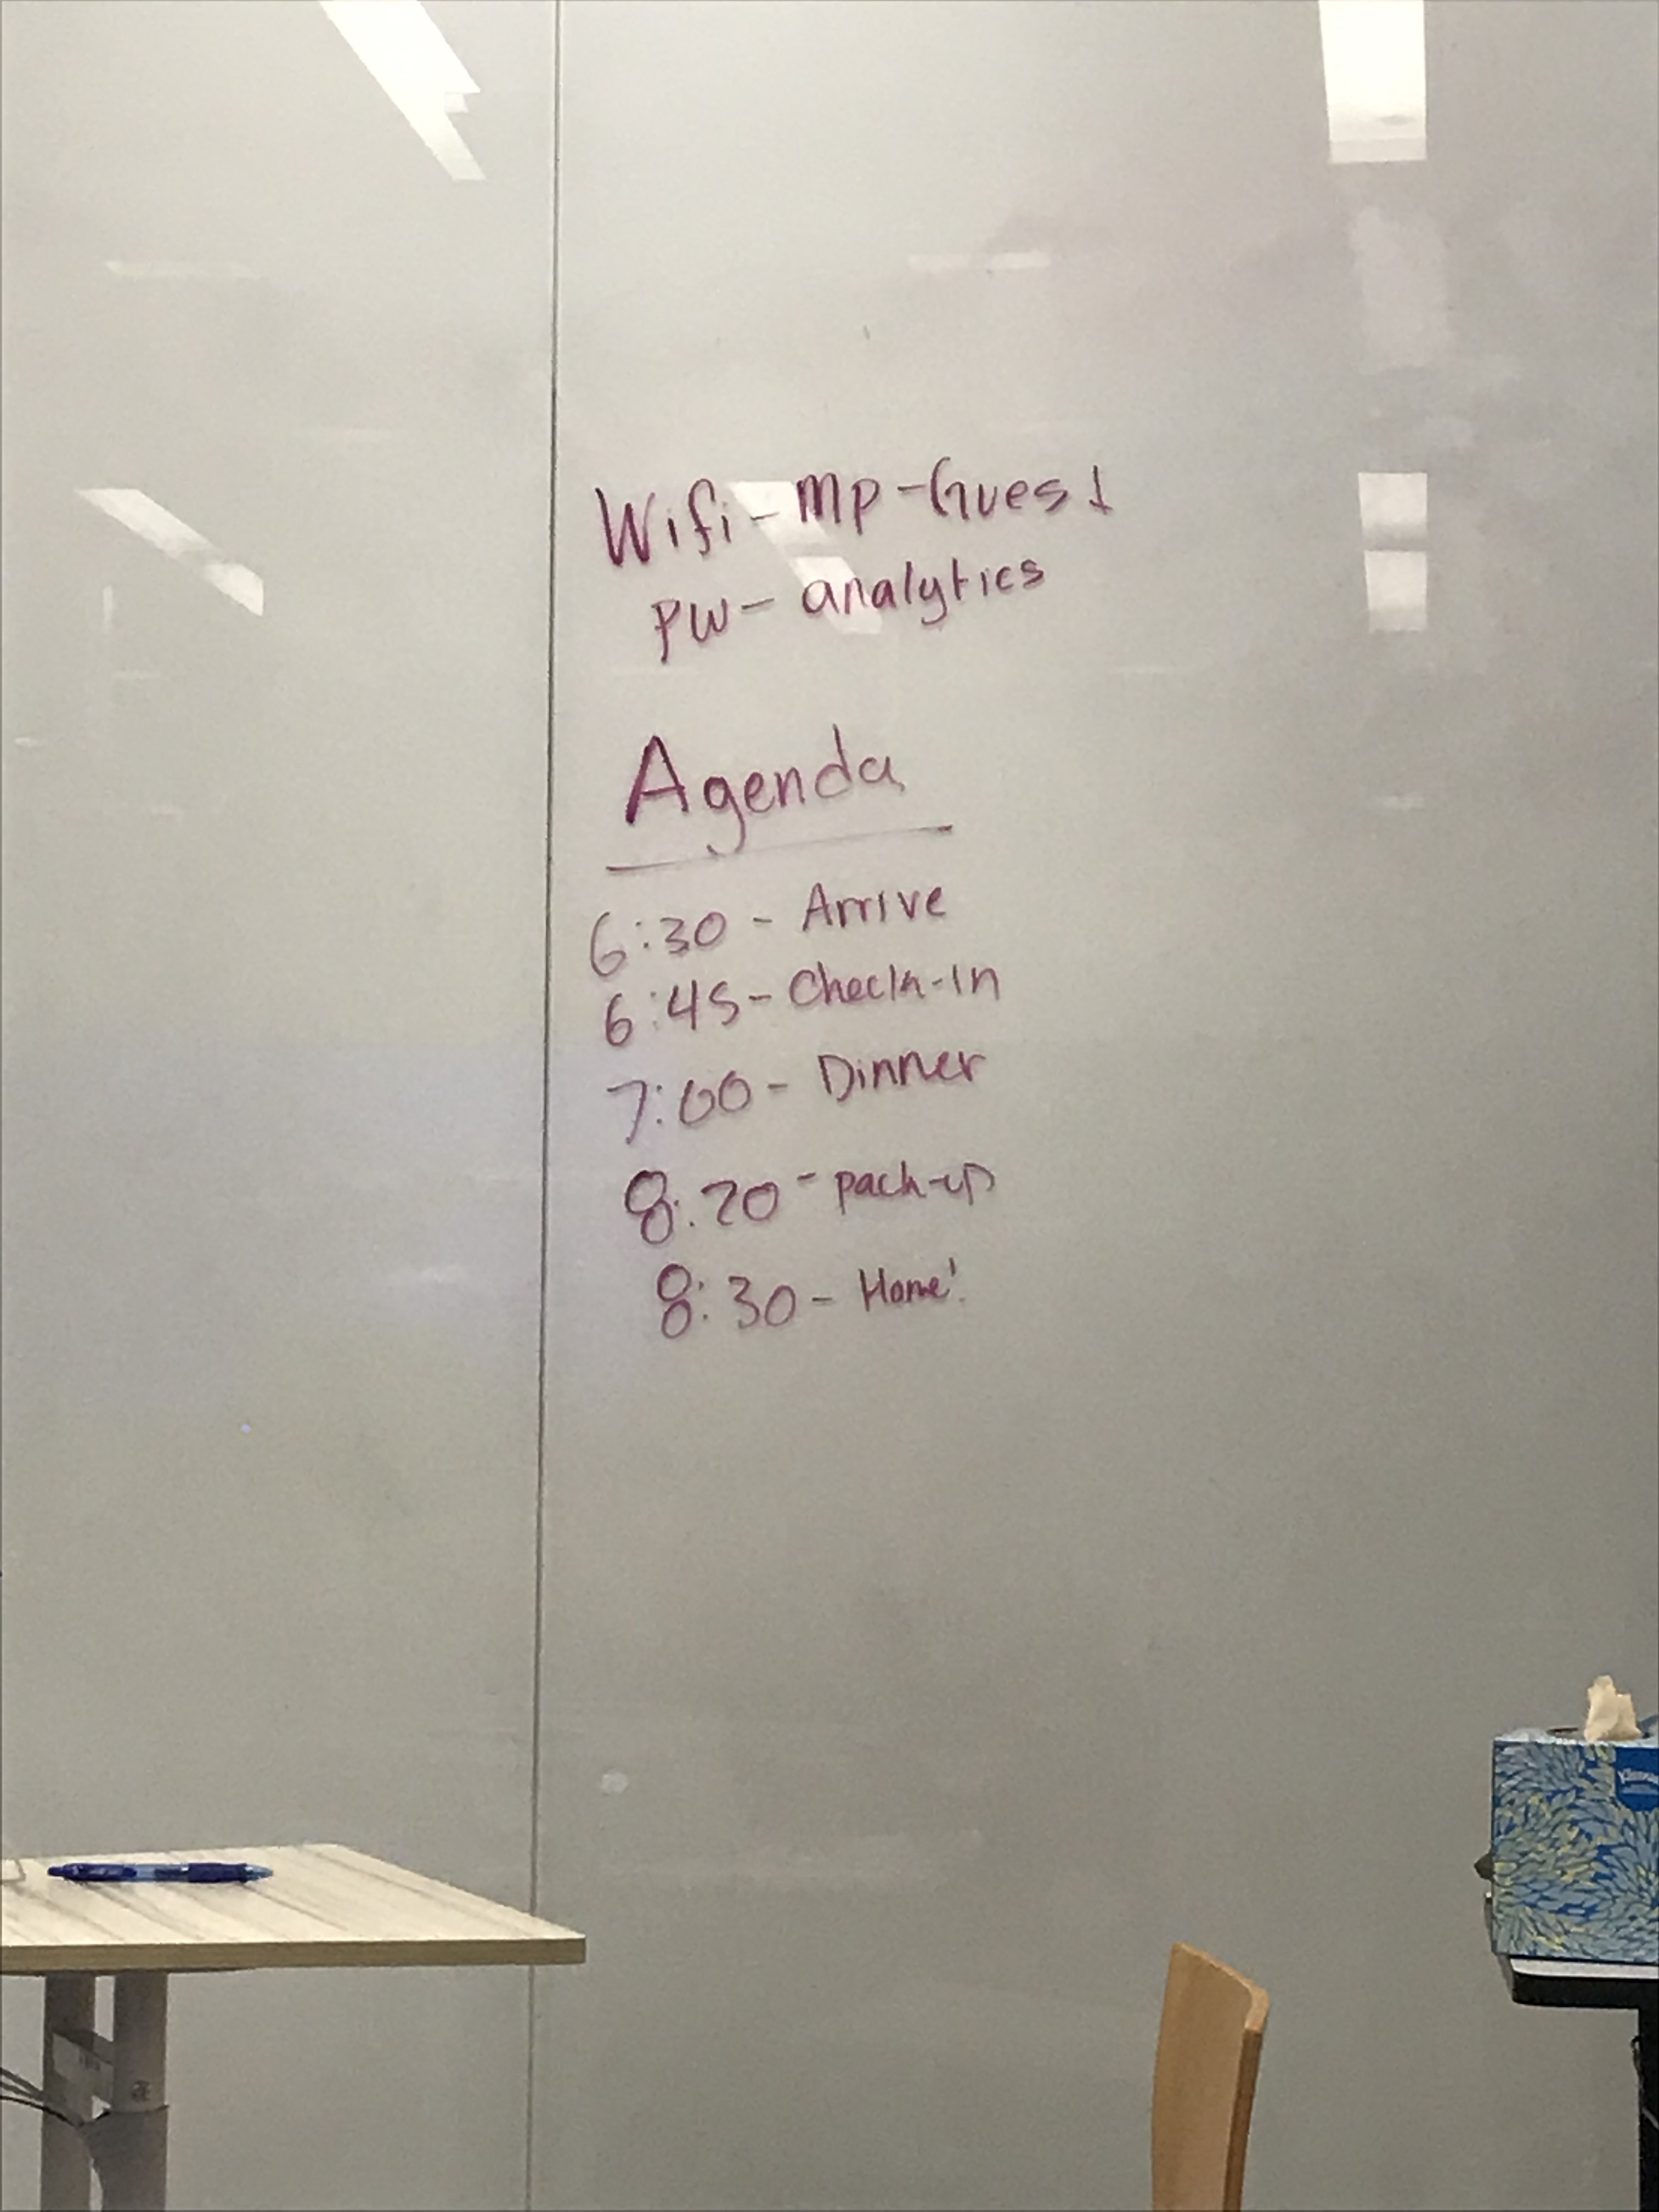 Wifi - MP-Guest
PW - analytics
Agenda
6:30 - Arrive
6:45 - Check-in
7:00 - Dinner
8:20 - pack-up
8:30 - Home!
Kleenex